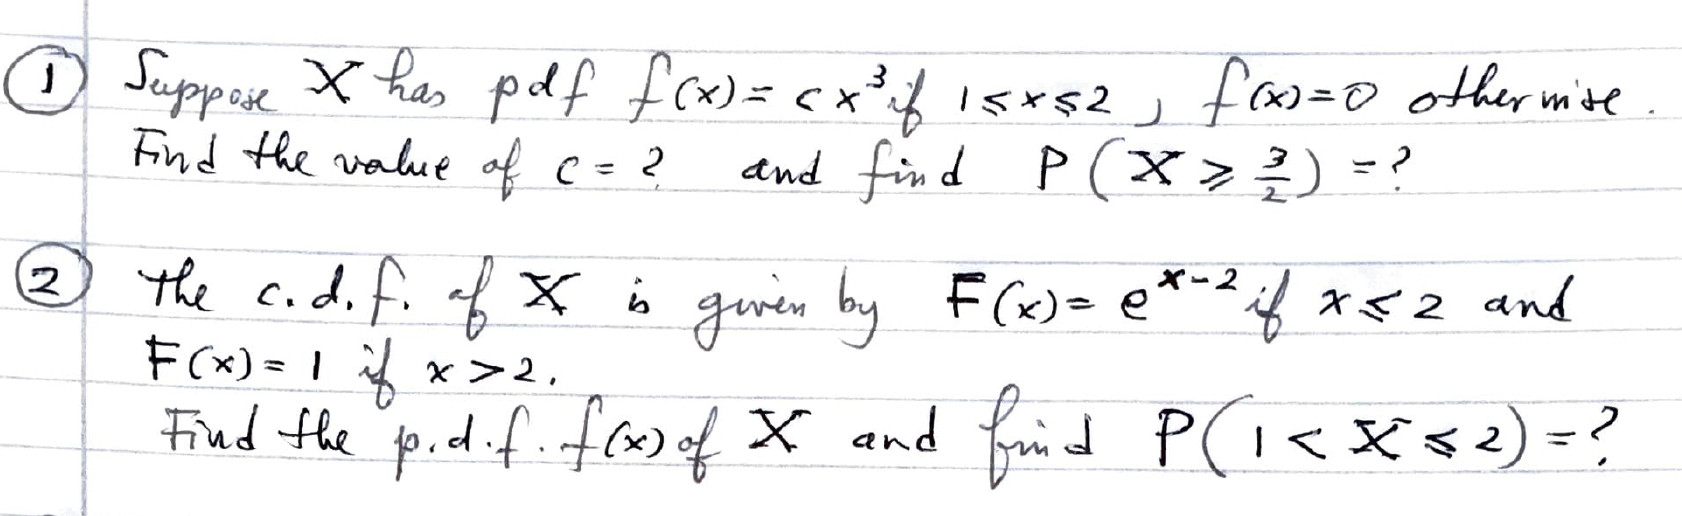 ① Suppose X has pdf f(x) = cx³ if 1 ≤ x ≤ 2, f(x) = 0 otherwise.
Find the value of c = ? and find P(X ≥ 3/2) = ?
② the c.d.f. of X is given by F(x) = e^{x-2} if x ≤ 2 and
F(x) = 1 if x > 2.
Find the p.d.f. f(x) of X and find P(1 < X ≤ 2) = ?